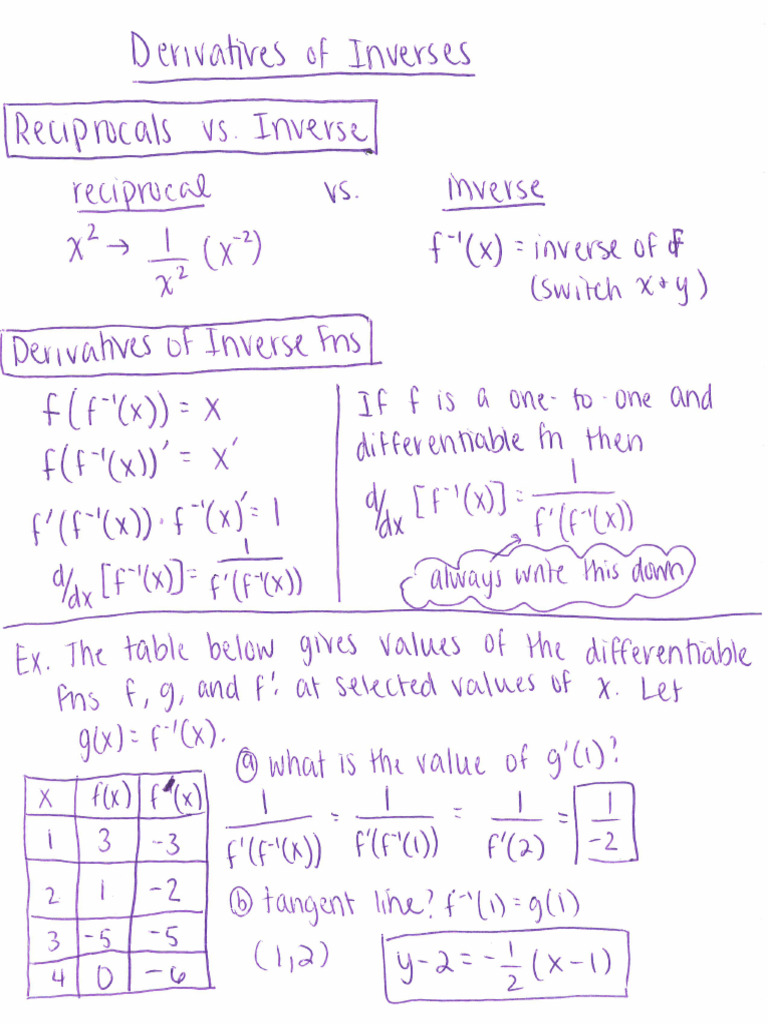 Derivatives of Inverses
Reciprocals vs. Inverse
reciprocal vs. inverse
x² → 1/x² (x⁻²)
f⁻¹(x) = inverse of f
(switch x + y)
Derivatives of Inverse Fns
f(f⁻¹(x)) = x
f(f⁻¹(x))' = x'
f'(f⁻¹(x)) · f⁻¹(x)' = 1
d/dx [f⁻¹(x)] = 1/f'(f⁻¹(x))
If f is a one-to-one and
differentiable fn then
d/dx [f⁻¹(x)] = 1/f'(f⁻¹(x))
always write this down
Ex. The table below gives values of the differentiable
fns f, g, and f' at selected values of x. Let
g(x) = f⁻¹(x).
x f(x) f'(x)
1 3 -3
2 1 -2
3 -5 -5
4 0 -6
ⓐ what is the value of g'(1)?
1/f'(f⁻¹(x)) = 1/f'(f⁻¹(1)) = 1/f'(2) = 1/-2
ⓑ tangent line? f⁻¹(1) = g(1)
(1,2) y-2 = -1/2 (x-1)